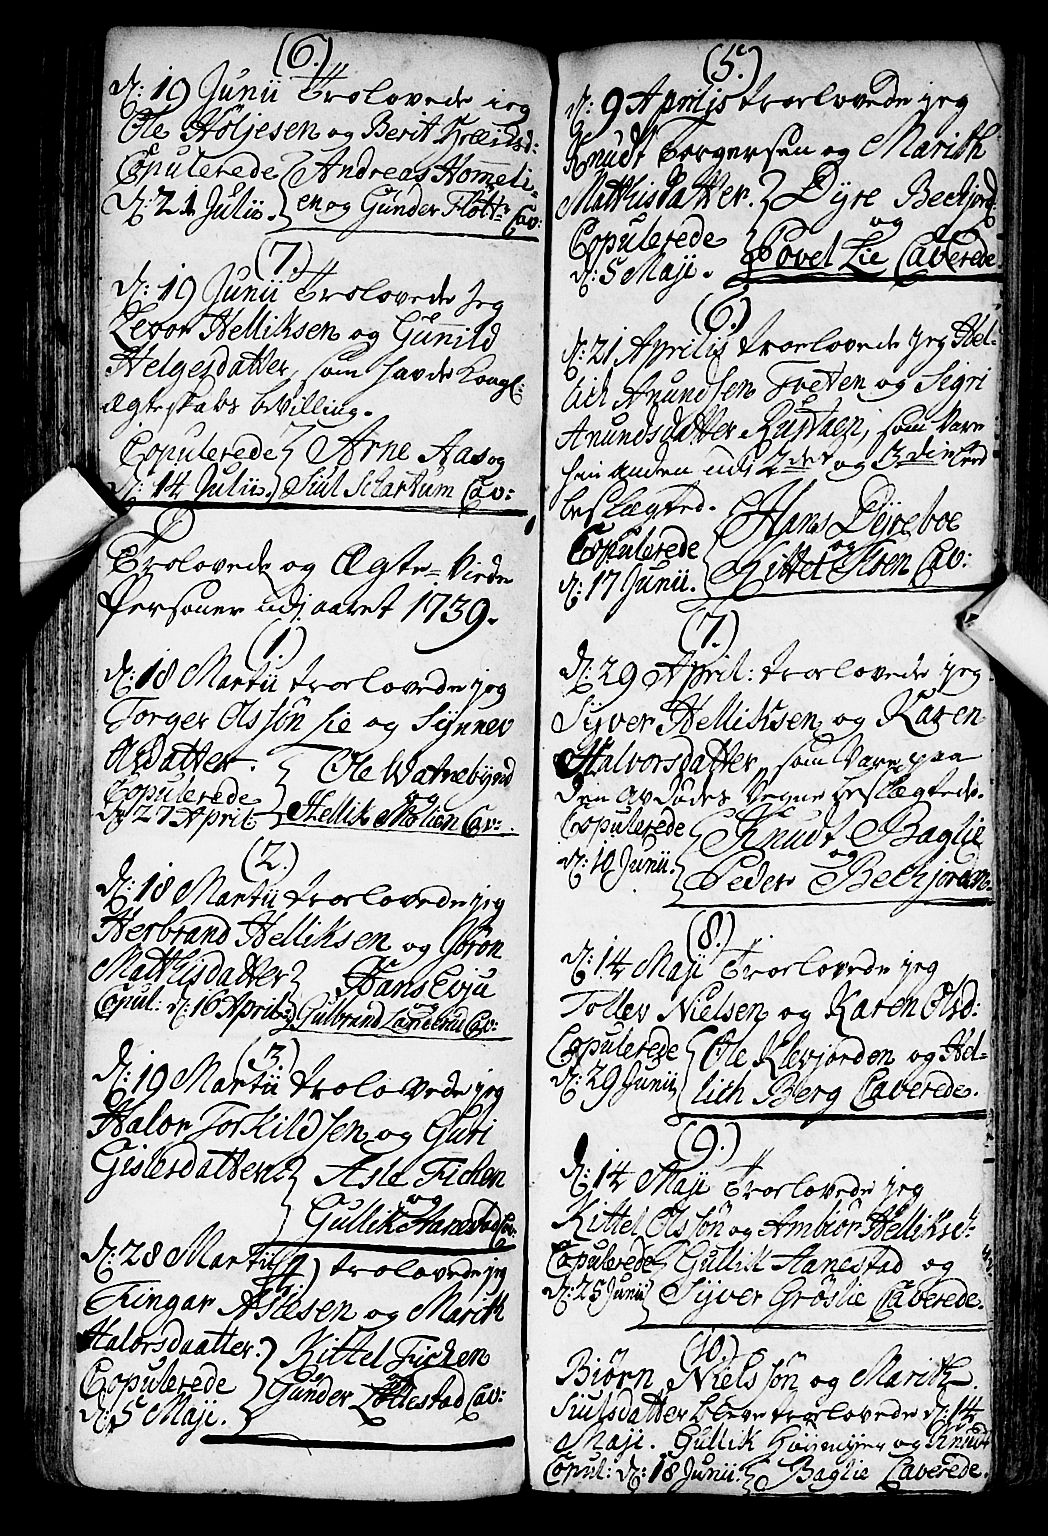 (6.)
d: 19 Junii Trolovede jeg
Ole Holjesen og Berit
Copulerede Andreas Hom̄eli-
d: 21 Julii. en og Gunder Flött: Cav:
(7.)
d: 19 Junii Trolovede Jeg
Levor Helliksen og Gun̄ild
Helgesdatter, som havde Kongl:
ægteskabs bevilling.
Copulerede Arne Aas og
d: 14 Julii. Siul Skartum Cav:
Trolovede og Ægte-Viede
Personer udj aaret 1739.
(1.)
d: 18 Martii trolovede jeg
Torger Olssön Lie og Synnev
datter. Ole Watnebrynd
Copulerede og
d: 27 April Hellik Molien Cav:
(2.)
d: 18 Martii trolovede jeg
Herbrand Helliksen og Jöron
Mathisdatter Hans Evju
Copul: d: 16 April: Gulbrand Landerud Cav:
(3.)
d: 19 Martii trolovede jeg
Halvor Torkildssen og Guri
Gislesdatter Asle Fichen
og
Gullik Hanestad Cav:
(4.)
d: 28 Martii trolovede jeg
Fingar Aslesen og Marith
Halvorsdaatter: Kittel Fichen
Copulerede og
d: 5 Maji. Gunder Cav:
(5.)
d: 9 Aprilis trolovede jeg
Knudt Torgersen og Marith
Mathisdatter. Dyre Bechjord
Copulerede og
d: 5 Maji. Povel Lie Caverede
(6.)
d: 21 Aprilis trolovede jeg Hel-
lich Anundsen Tveten og Segri
Anundsdatter Rustaen, som vare
hin anden udi 2det og 3die Led
beslægted.
Copulerede Hans Dyreboe
og
d: 17 Junii. Kittel Moen Cav:
(7.)
d: 29 April: trolovede jeg
Syver Helliksen og Karen
Halvorsdatter, som vare paa
den avdödes Vegne beslægtede.
Copulerede Knudt Baglie
og
d: 10 Junii. Peder Bechjorden
(8.)
d: 14 Maji Trolovede jeg
Tollev Nielsen og Karen Olsd:
Copulerede Ole Klevjorden og Hel-
d: 29 Junii lich Berg Caverede.
(9.)
d: 14 Maji Trolovede jeg
Kittel Olssön og Ambiör Helliksd:
Copulerede Gullik Hanestad og
d: 25 Junii Syver Gröslie Caverede.
(10.)
Biørn Nielssön og Marith
Siulsdatter bleve trolovede d: 14
Maji. Gullik og Knudt
Copul: d: 18 Junii. Baglie Caverede.